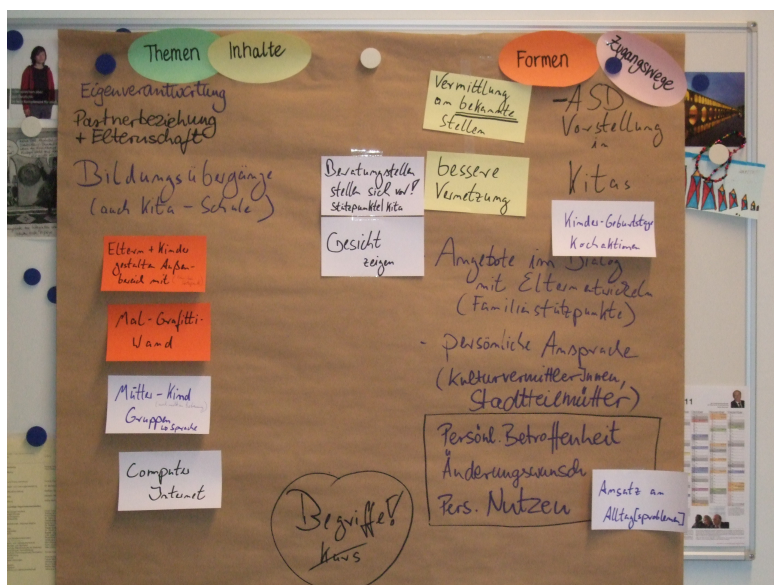 Themen
Inhalte
Formen
Zugangswege
Eigenverantwortung
Partnerbeziehung
+ Elternschaft
Bildungsübergänge
(auch Kita - Schule)
Eltern + Kinder
gestalten Außen-
bereich mit
Mal-Grafitti-
Wand
Mütter-Kind
Gruppen
Computer
Internet
Beratungsstellen
stellen sich vor!
Stützpunkte/Kita
Gesicht
zeigen
Vermittlung
an bekannte
Stellen
bessere
Vernetzung
- ASD
Vorstellung
in
Kitas
Kinder-Geburtstage
Kochaktionen
Angebote im Dialog
mit Eltern entwickeln
(Familienstützpunkte)
- persönliche Ansprache
(KulturvermittlerInnen,
Stadtteilmütter)
Persönl. Betroffenheit
Änderungswunsch
Pers. Nutzen
Ansatz an
Alltag[sproblemen]
Begriffe!
Kurs
11